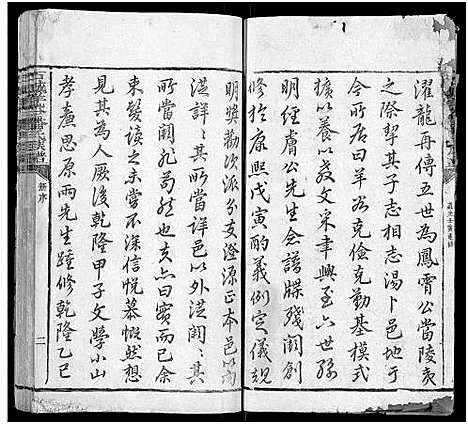 濯龍再傳五世為鳳霄公當陵夷
之際挈其子志相志湯卜邑地于
今所居曰羊城克儉克勤基模式
擴以養以教文采聿興至五世孫
明經膚公先生念譜牒殘闕創
修於康熙戊寅酌義例定儀規
明獎勸次派分支澄源正本邑以內
從詳詳其所當詳邑以外從闕闕其
所當闕非苟然也夫亦曰實而已余
束髮讀之未嘗不深信悅慕慨然想
見其為人厥後乾隆甲子文學小山
孝廉思原兩先生踵修乾隆乙巳
新序
二